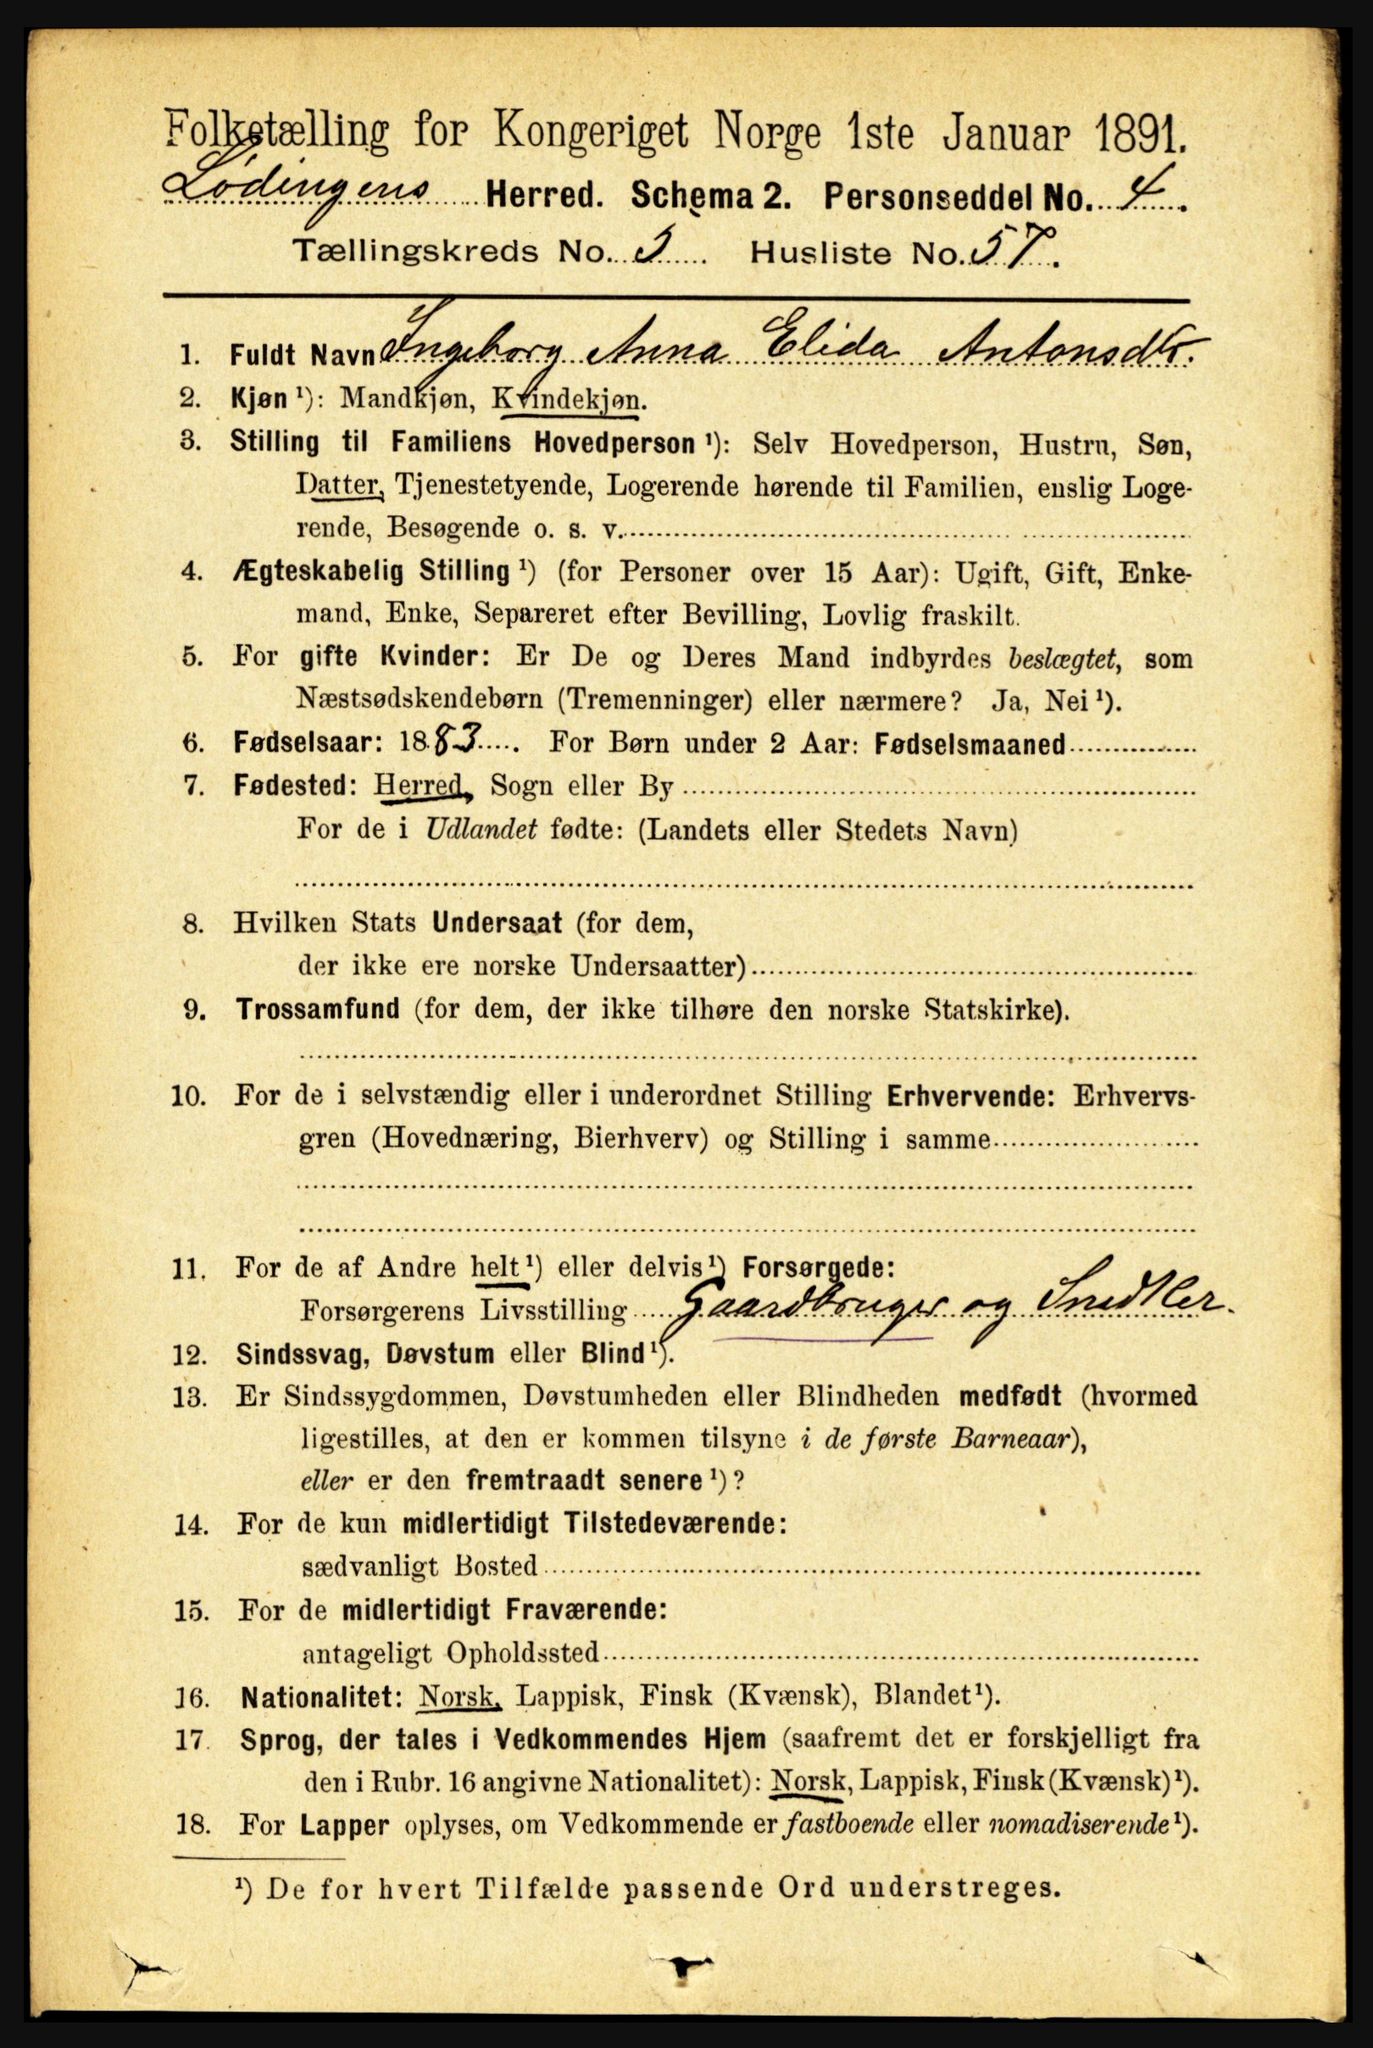 Folketælling for Kongeriget Norge 1ste Januar 1891.
Lødingens Herred. Schema 2. Personseddel No. 4.
Tællingskreds No. 3. Husliste No. 57.
1. Fuldt Navn Ingeborg Anna Elida Antonsdtr.
2. Kjøn ¹): Mandkjøn, Kvindekjøn.
3. Stilling til Familiens Hovedperson ¹): Selv Hovedperson, Hustru, Søn,
Datter, Tjenestetyende, Logerende hørende til Familien, enslig Loge-
rende, Besøgende o. s. v.
4. Ægteskabelig Stilling ¹) (for Personer over 15 Aar): Ugift, Gift, Enke-
mand, Enke, Separeret efter Bevilling, Lovlig fraskilt.
5. For gifte Kvinder: Er De og Deres Mand indbyrdes beslægtet, som
Næstsødskendebørn (Tremenninger) eller nærmere? Ja, Nei ¹).
6. Fødselsaar: 1883. For Børn under 2 Aar: Fødselsmaaned
7. Fødested: Herred, Sogn eller By
For de i Udlandet fødte: (Landets eller Stedets Navn)
8. Hvilken Stats Undersaat (for dem,
der ikke ere norske Undersaatter)
9. Trossamfund (for dem, der ikke tilhøre den norske Statskirke).
10. For de i selvstændig eller i underordnet Stilling Erhvervende: Erhvervs-
gren (Hovednæring, Bierhverv) og Stilling i samme
11. For de af Andre helt ¹) eller delvis ¹) Forsørgede:
Forsørgerens Livsstilling Gaardbruger og Snedker.
12. Sindssvag, Døvstum eller Blind ¹).
13. Er Sindssygdommen, Døvstumheden eller Blindheden medfødt (hvormed
ligestilles, at den er kommen tilsyne i de første Barneaar),
eller er den fremtraadt senere ¹)?
14. For de kun midlertidigt Tilstedeværende:
sædvanligt Bosted
15. For de midlertidigt Fraværende:
antageligt Opholdssted
16. Nationalitet: Norsk, Lappisk, Finsk (Kvænsk), Blandet ¹).
17. Sprog, der tales i Vedkommendes Hjem (saafremt det er forskjelligt fra
den i Rubr. 16 angivne Nationalitet): Norsk, Lappisk, Finsk (Kvænsk) ¹).
18. For Lapper oplyses, om Vedkommende er fastboende eller nomadiserende ¹).
¹) De for hvert Tilfælde passende Ord understreges.